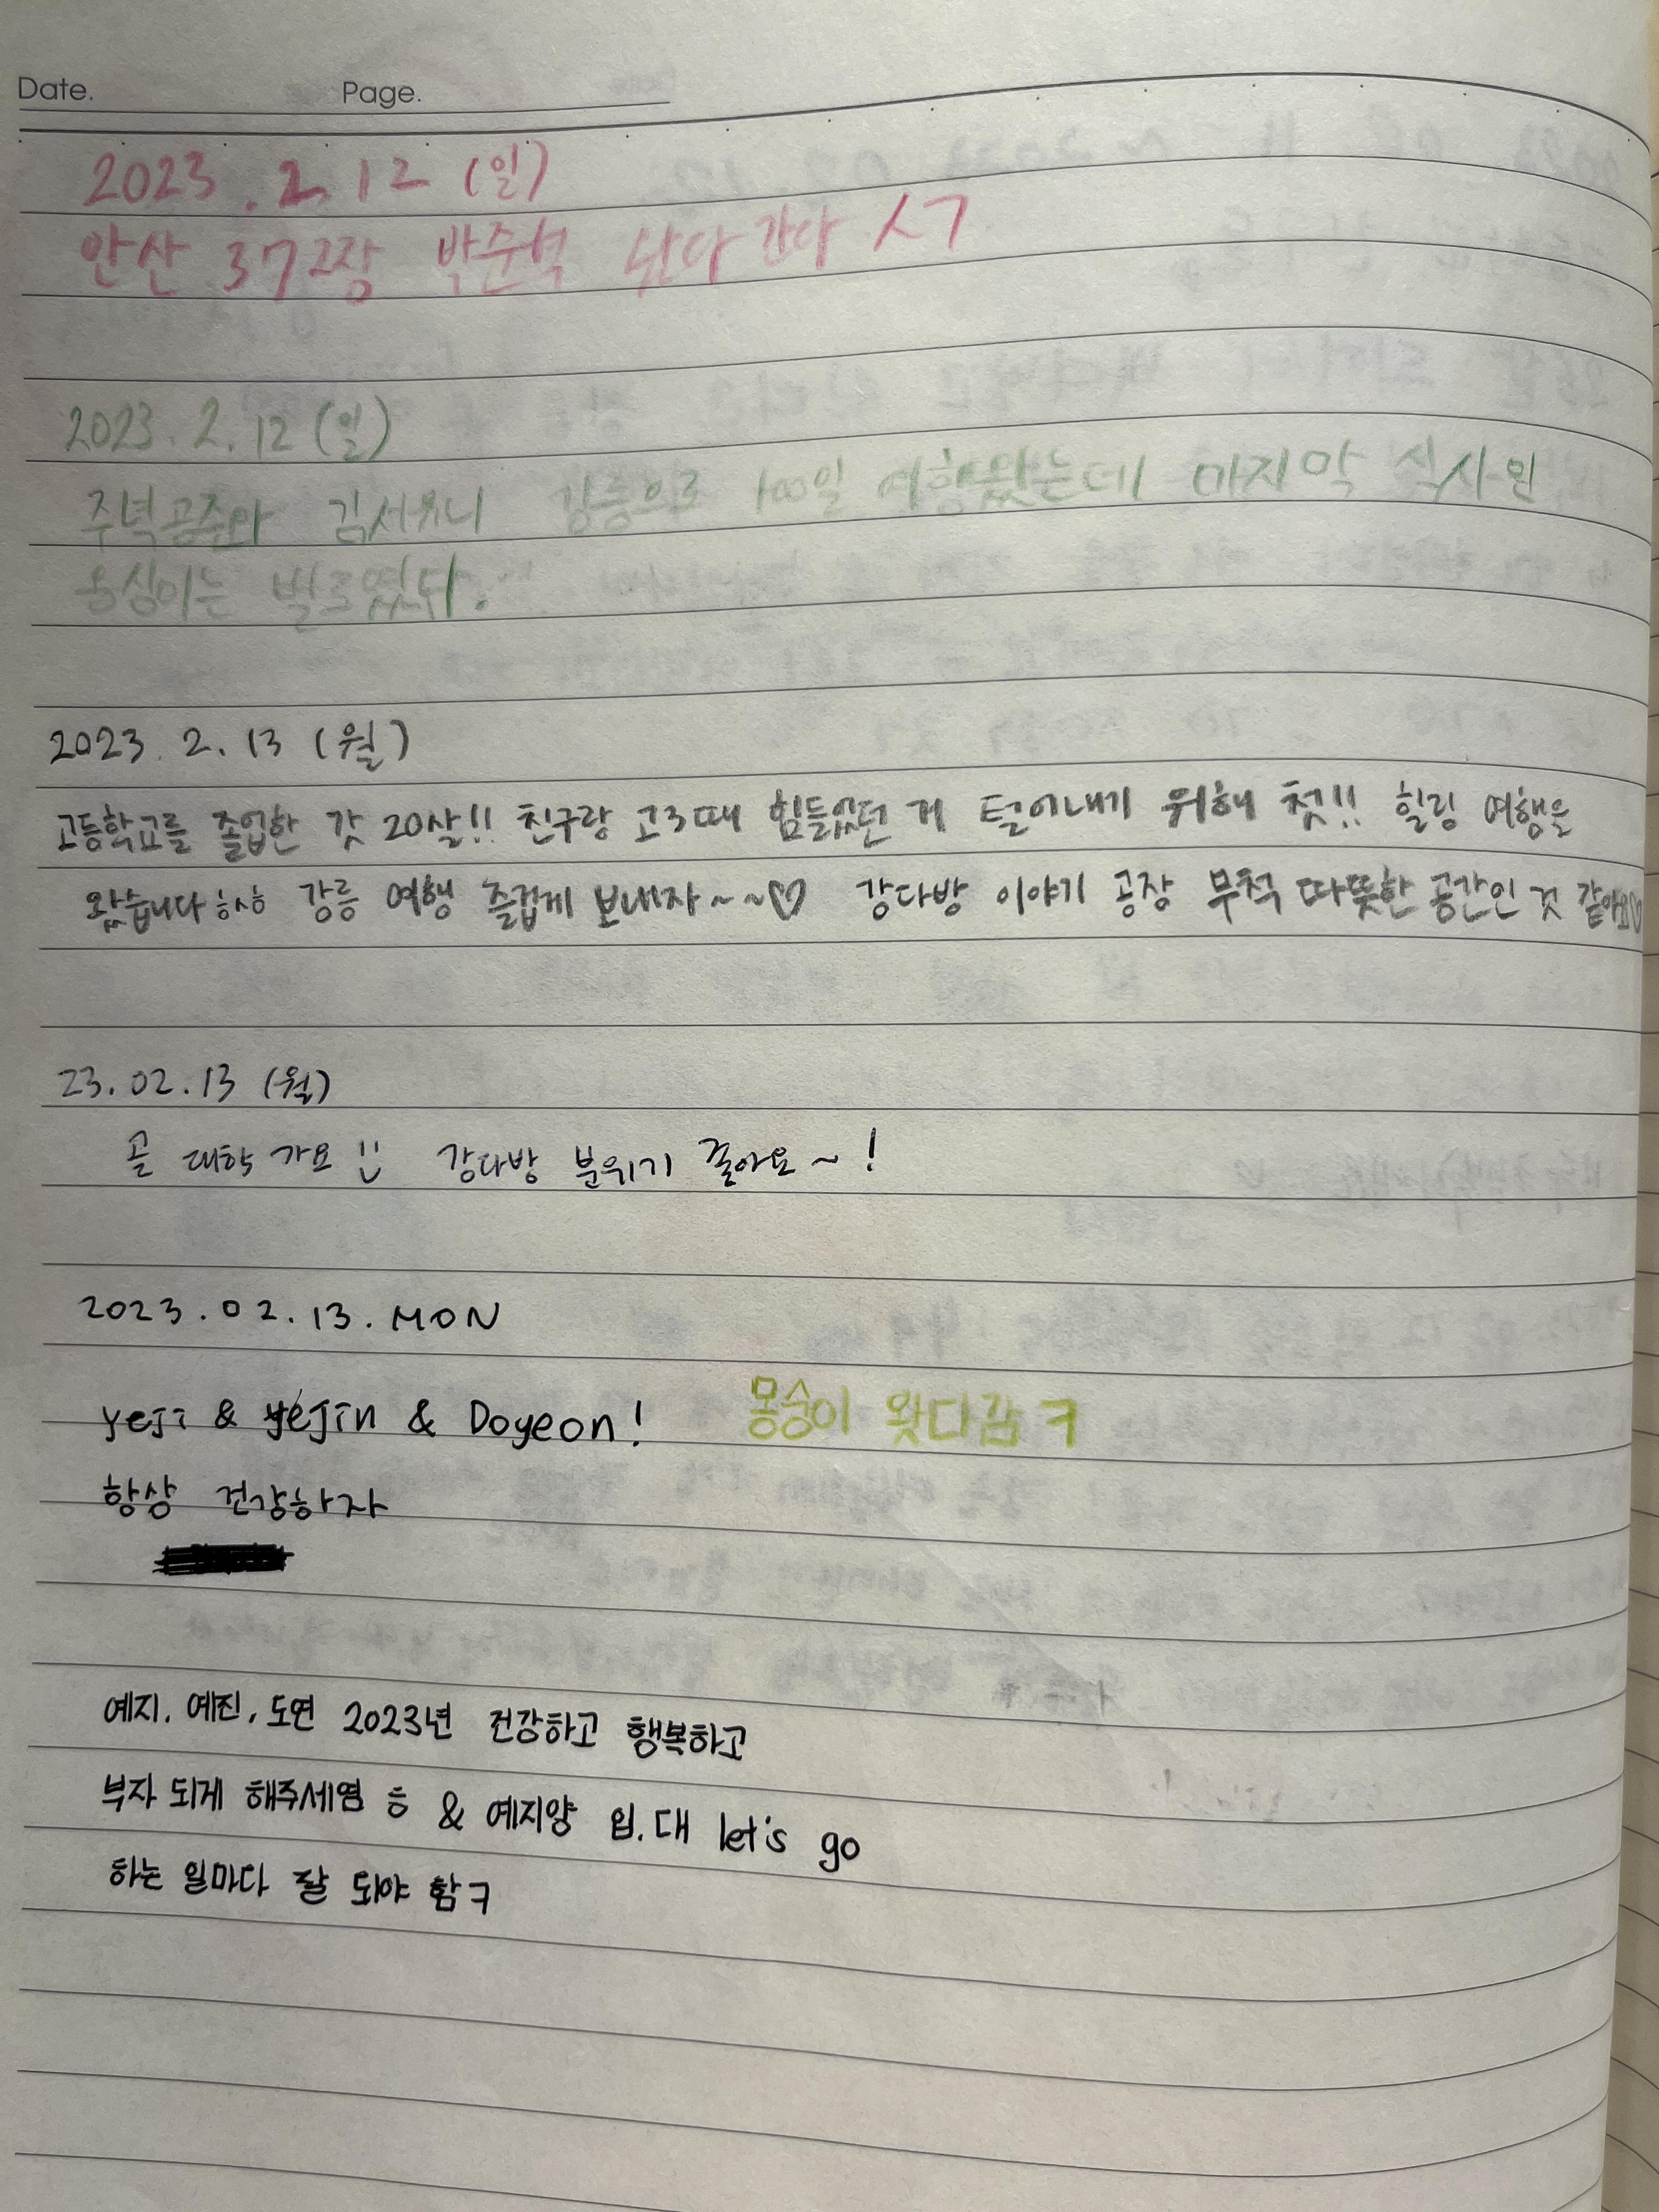 Date. Page.
2023.2.12 (일)
안산 372장 박준석 왔다 간다 ㅅㄱ
2023.2.12 (일)
주녁공주와 김서유니 강릉으로 100일 여행왔는데 마지막 식사인
옹심이는 별로였둬.
2023.2.13 (월)
고등학교를 졸업한 갓 20살!! 친구랑 고3때 힘들었던 게 털어내기 위해 첫!! 힐링 여행을
왔습니다ㅎㅅㅎ 강릉 여행 즐겁게 보내자~~♡ 강다방 이야기 공장 무척 따뜻한 공간인 것 같아요♡
23.02.13 (월)
곧 대학 가요 !! 강다방 분위기 좋아요~!
2023.02.13.MON
yeji & yejin & Doyeon! 몽숭이 왓다감ㅋ
항상 건강하자
예지, 예진, 도연 2023년 건강하고 행복하고
부자 되게 해주세염 ㅎ & 예지양 입.대 let's go
하는 일마다 잘 되야 함ㅋ